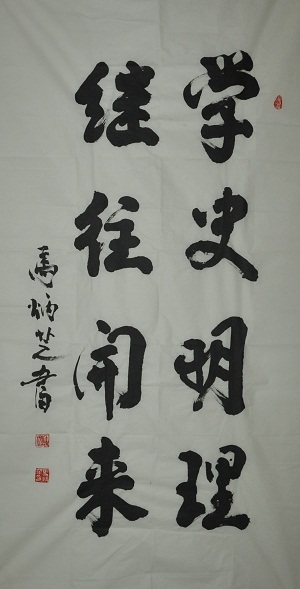 学史明理
继往开来
馬炳芝書